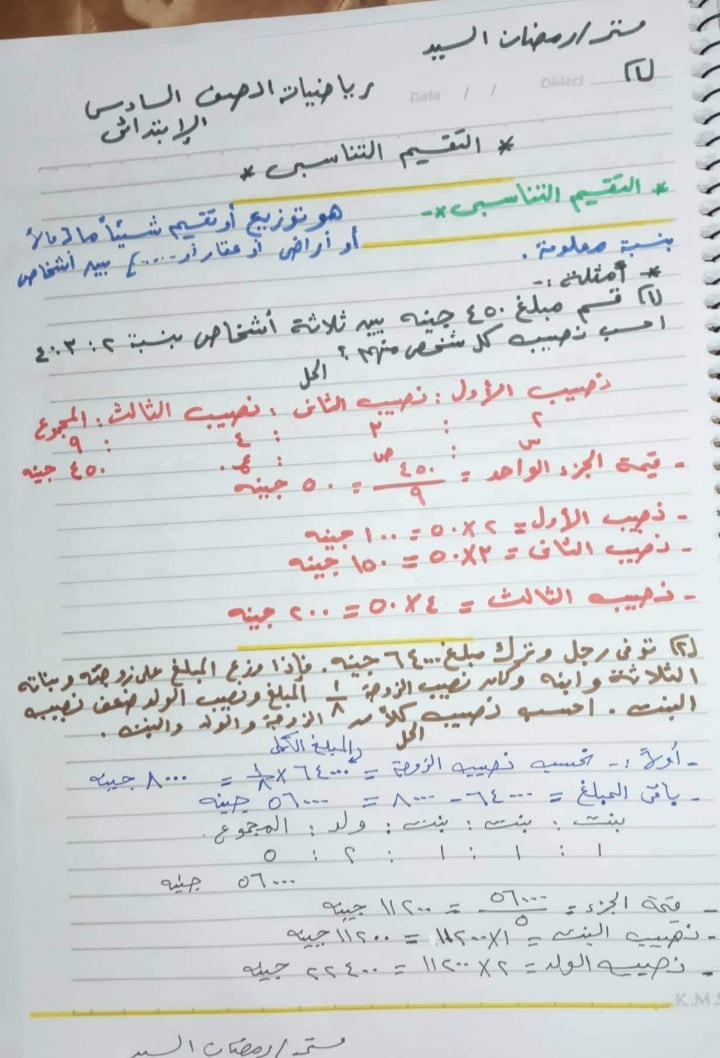 مستر/رمضان السيد
(١) Data / / Object
رياضيات الصف السادس
الإبتدائى
* التقسيم التناسبى *
* التقسيم التناسبى *- هو توزيع أو تقسيم شيئاً ما (مالاً
أو أراضى أو عقار أو .....) بين أشخاص
بنسبة معلومة.
* أمثلة :-
(١) قسم مبلغ ٤٥٠ جنيه بين ثلاثة أشخاص بنسبة ٢ : ٣ : ٤
احسب نصيب كل شخص منهم ؟
الحل
نصيب الأول : نصيب الثانى : نصيب الثالث : المجموع
٢ : ٣ : ٤ : ٩
س : ص : ع : ٤٥٠ جنيه
- قيمة الجزء الواحد = ٤٥٠/٩ = ٥٠ جنيه
- نصيب الأول = ٢ × ٥٠ = ١٠٠ جنيه
- نصيب الثانى = ٣ × ٥٠ = ١٥٠ جنيه
- نصيب الثالث = ٤ × ٥٠ = ٢٠٠ جنيه
(٢) توفى رجل وترك مبلغ ٦٤٠٠٠ جنيه. فإذا وزع المبلغ على زوجته وبناته
الثلاثة وابنه وكان نصيب الزوجة ١/٨ المبلغ ونصيب الولد ضعف نصيب
البنت. احسب نصيب كلاً من الزوجة والولد والبنت.
الحل
- أولاً :- نحسب نصيب الزوجة = ٦٤٠٠٠ × ١/٨ = ٨٠٠٠ جنيه
- باقى المبلغ = ٦٤٠٠٠ - ٨٠٠٠ = ٥٦٠٠٠ جنيه
بنت : بنت : بنت : ولد : المجموع
١ : ١ : ١ : ٢ : ٥
٥٦٠٠٠ جنيه
- قيمة الجزء = ٥٦٠٠٠/٥ = ١١٢٠٠ جنيه
- نصيب البنت = ١ × ١١٢٠٠ = ١١٢٠٠ جنيه
- نصيب الولد = ٢ × ١١٢٠٠ = ٢٢٤٠٠ جنيه
K.M.
مستر/رمضان السيد